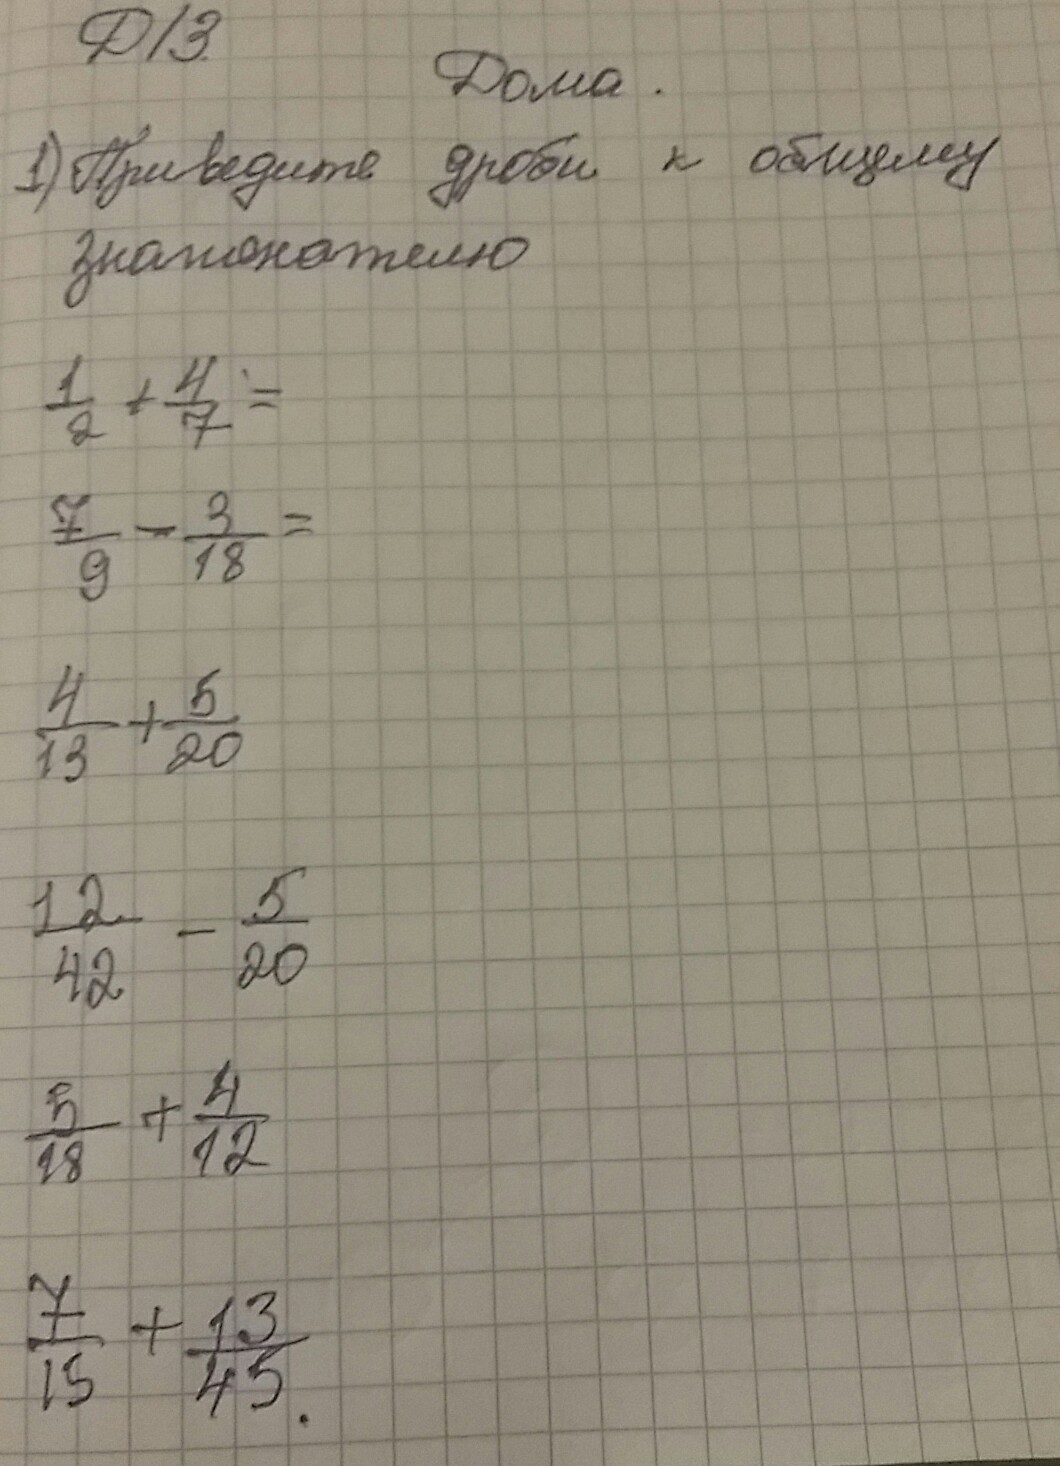 Д/З.
Дома.
1) Приведите дроби к общему
знаменателю
1/2 + 4/7 =
7/9 - 3/18 =
4/13 + 5/20
12/42 - 5/20
5/18 + 4/12
7/15 + 13/45.